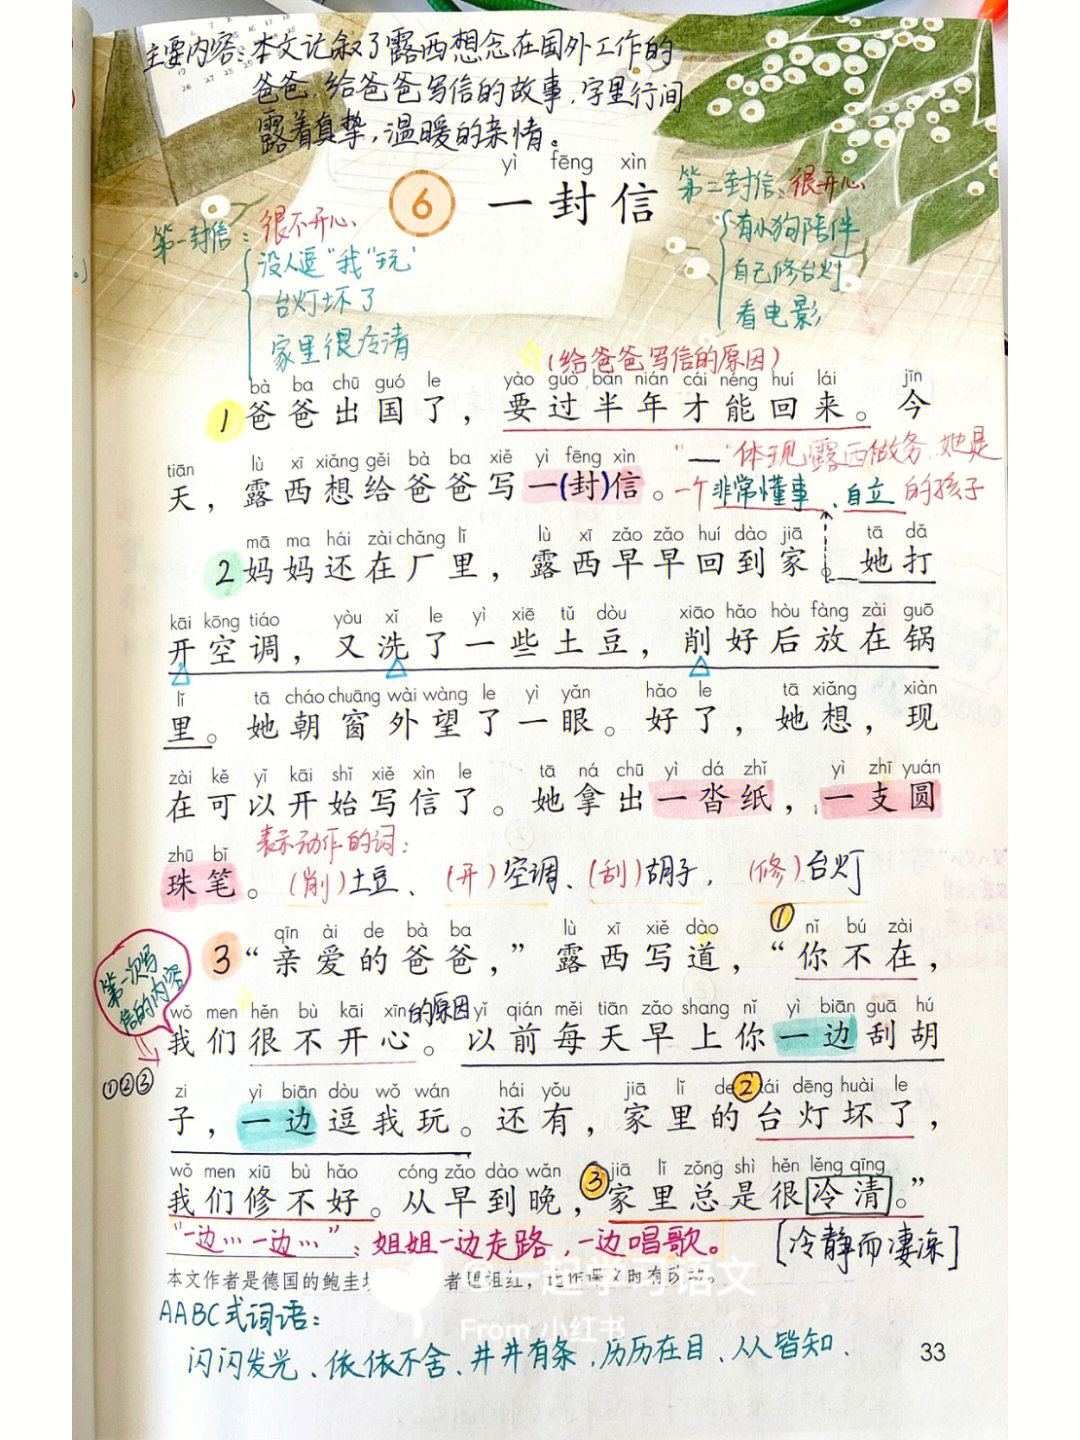 主要内容：本文记叙了露西想念在国外工作的
爸爸，给爸爸写信的故事，字里行间
露着真挚，温暖的亲情。
yì fēng xìn
6 一封信
第一封信：很不开心
没人逗“我”玩
台灯坏了
家里很冷清
第二封信：很开心
有小狗陪伴
自己修台灯
看电影
(给爸爸写信的原因)
bà ba chū guó le yào guò bàn nián cái néng huí lái jīn
1 爸爸出国了，要过半年才能回来。今
tiān lù xī xiǎng gěi bà ba xiě yì fēng xìn
天，露西想给爸爸写一(封)信。
“__”体现露西做务，她是
一个非常懂事、自立的孩子
mā ma hái zài chǎng lǐ lù xī zǎo zǎo huí dào jiā tā dǎ
2 妈妈还在厂里，露西早早回到家。她打
kāi kōng tiáo yòu xǐ le yì xiē tǔ dòu xiāo hǎo hòu fàng zài guō
开空调，又洗了一些土豆，削好后放在锅
lǐ tā cháo chuāng wài wàng le yì yǎn hǎo le tā xiǎng xiàn
里。她朝窗外望了一眼。好了，她想，现
zài kě yǐ kāi shǐ xiě xìn le tā ná chū yì dá zhǐ yì zhī yuán
在可以开始写信了。她拿出一沓纸，一支圆
zhū bǐ
珠笔。
表示动作的词：
(削)土豆、(开)空调、(刮)胡子，(修)台灯
qīn ài de bà ba lù xī xiě dào ① nǐ bú zài
3 “亲爱的爸爸，”露西写道，“你不在，
第一次写
信的内容
①②③
wǒ men hěn bù kāi xīn 的原因 yǐ qián měi tiān zǎo shang nǐ yì biān guā hú
我们很不开心。以前每天早上你一边刮胡
zi yì biān dòu wǒ wán hái yǒu jiā lǐ de ② tái dēng huài le
子，一边逗我玩。还有，家里的台灯坏了，
wǒ men xiū bù hǎo cóng zǎo dào wǎn ③ jiā lǐ zǒng shì hěn lěng qīng
我们修不好。从早到晚，家里总是很冷清。”
“一边…一边…”：姐姐一边走路，一边唱歌。
[冷静而凄凉]
本文作者是德国的鲍圭
@一起学习语文
From 小红书
AABC式词语：
闪闪发光、依依不舍、井井有条，历历在目、人人皆知、
33